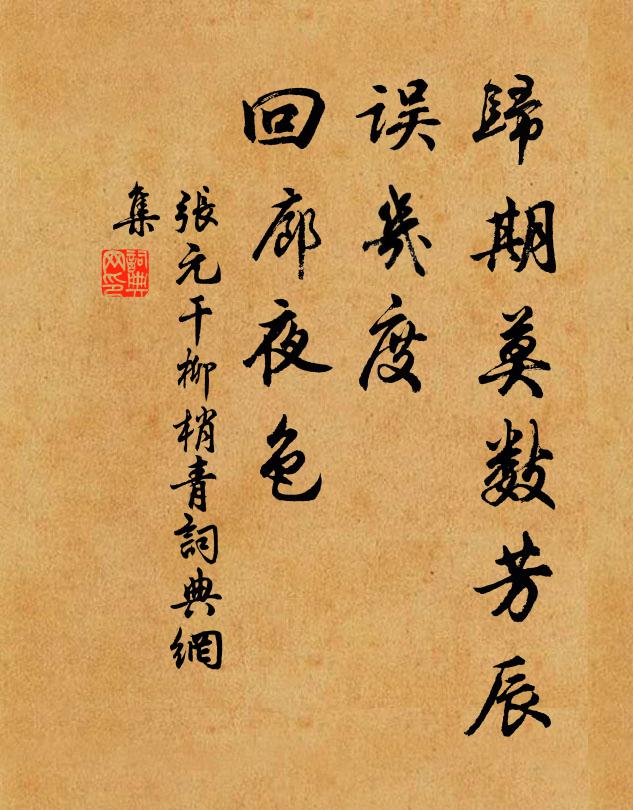 歸期莫数芳辰
误幾度
回廊夜色
張元干柳梢青詞典網
集
詞典
网印